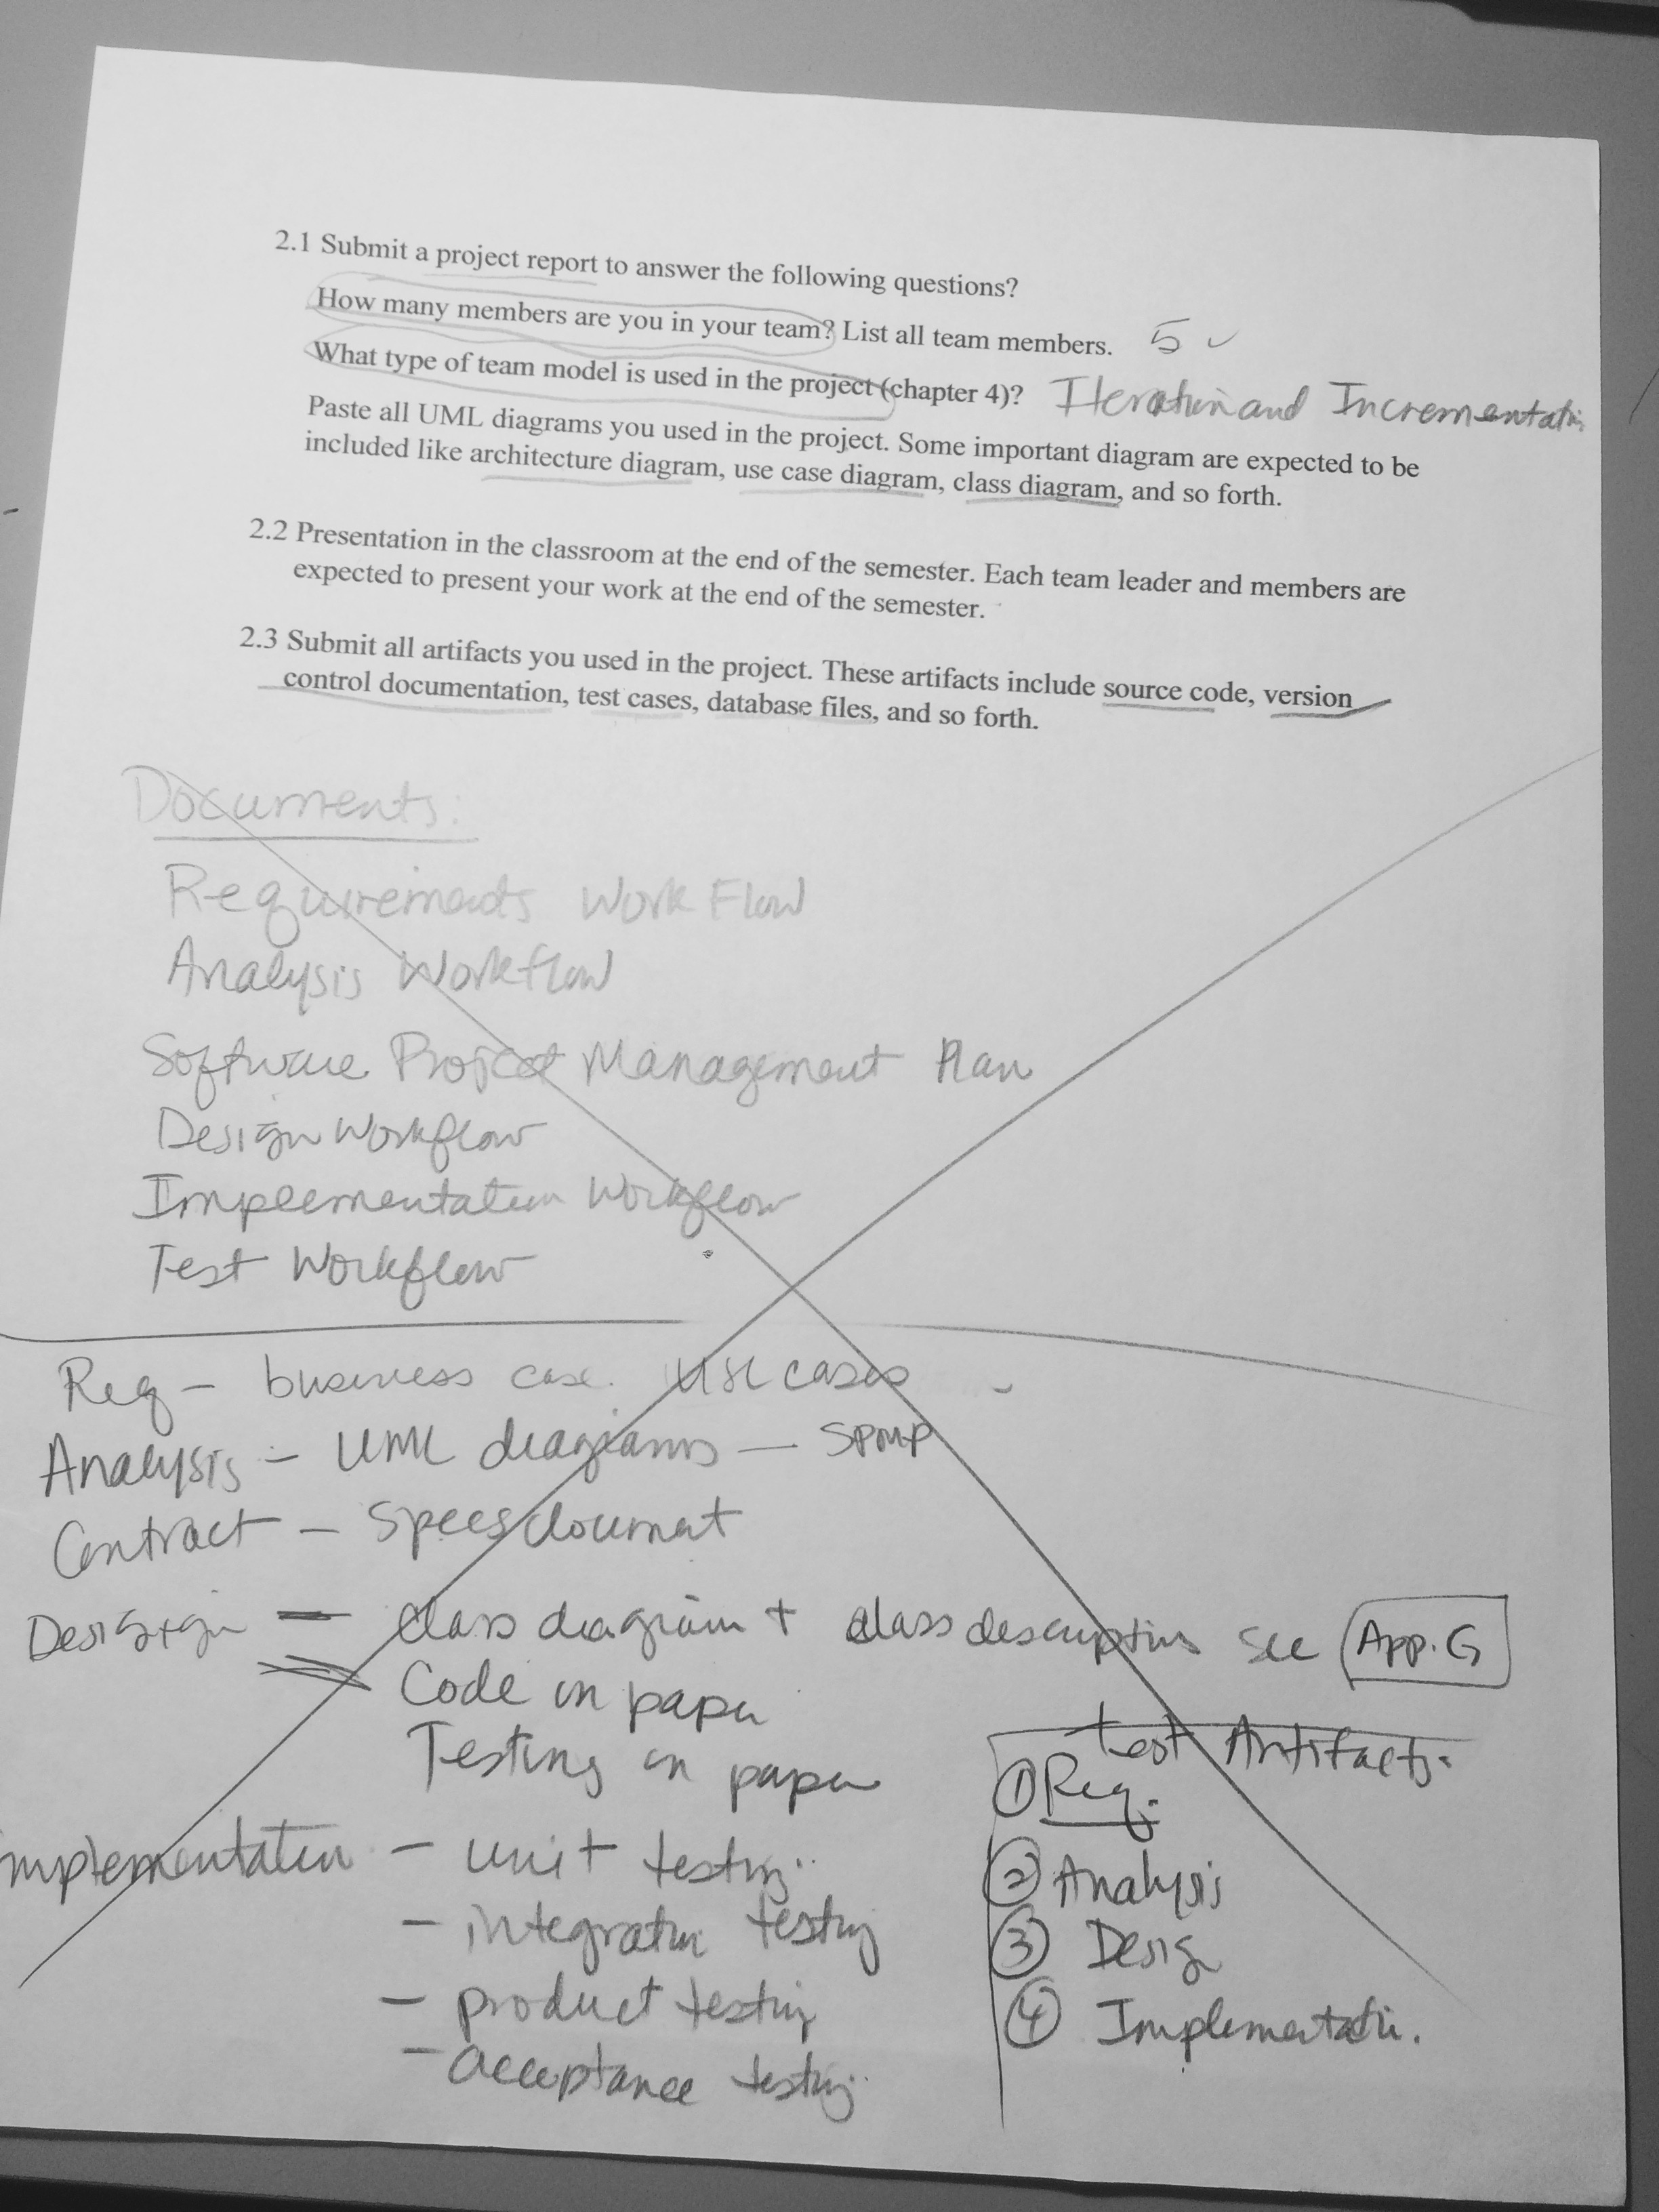 2.1 Submit a project report to answer the following questions?
How many members are you in your team? List all team members. 5
What type of team model is used in the project (chapter 4)? Iteration and Incrementation
Paste all UML diagrams you used in the project. Some important diagram are expected to be
included like architecture diagram, use case diagram, class diagram, and so forth.
2.2 Presentation in the classroom at the end of the semester. Each team leader and members are
expected to present your work at the end of the semester.
2.3 Submit all artifacts you used in the project. These artifacts include source code, version
control documentation, test cases, database files, and so forth.
Documents:
Requirements Work Flow
Analysis Workflow
Software Project Management Plan
Design Workflow
Implementation Workflow
Test Workflow
Req - business case. use cases
Analysis - UML diagrams - SPMP
Contract - Specs document
Design - class diagram + class description see App. G
Code on paper
Testing on paper
Implementation - unit testing
- integration testing
- product testing
- acceptance testing
test Artifacts.
① Req.
② Analysis
③ Design
④ Implementation.